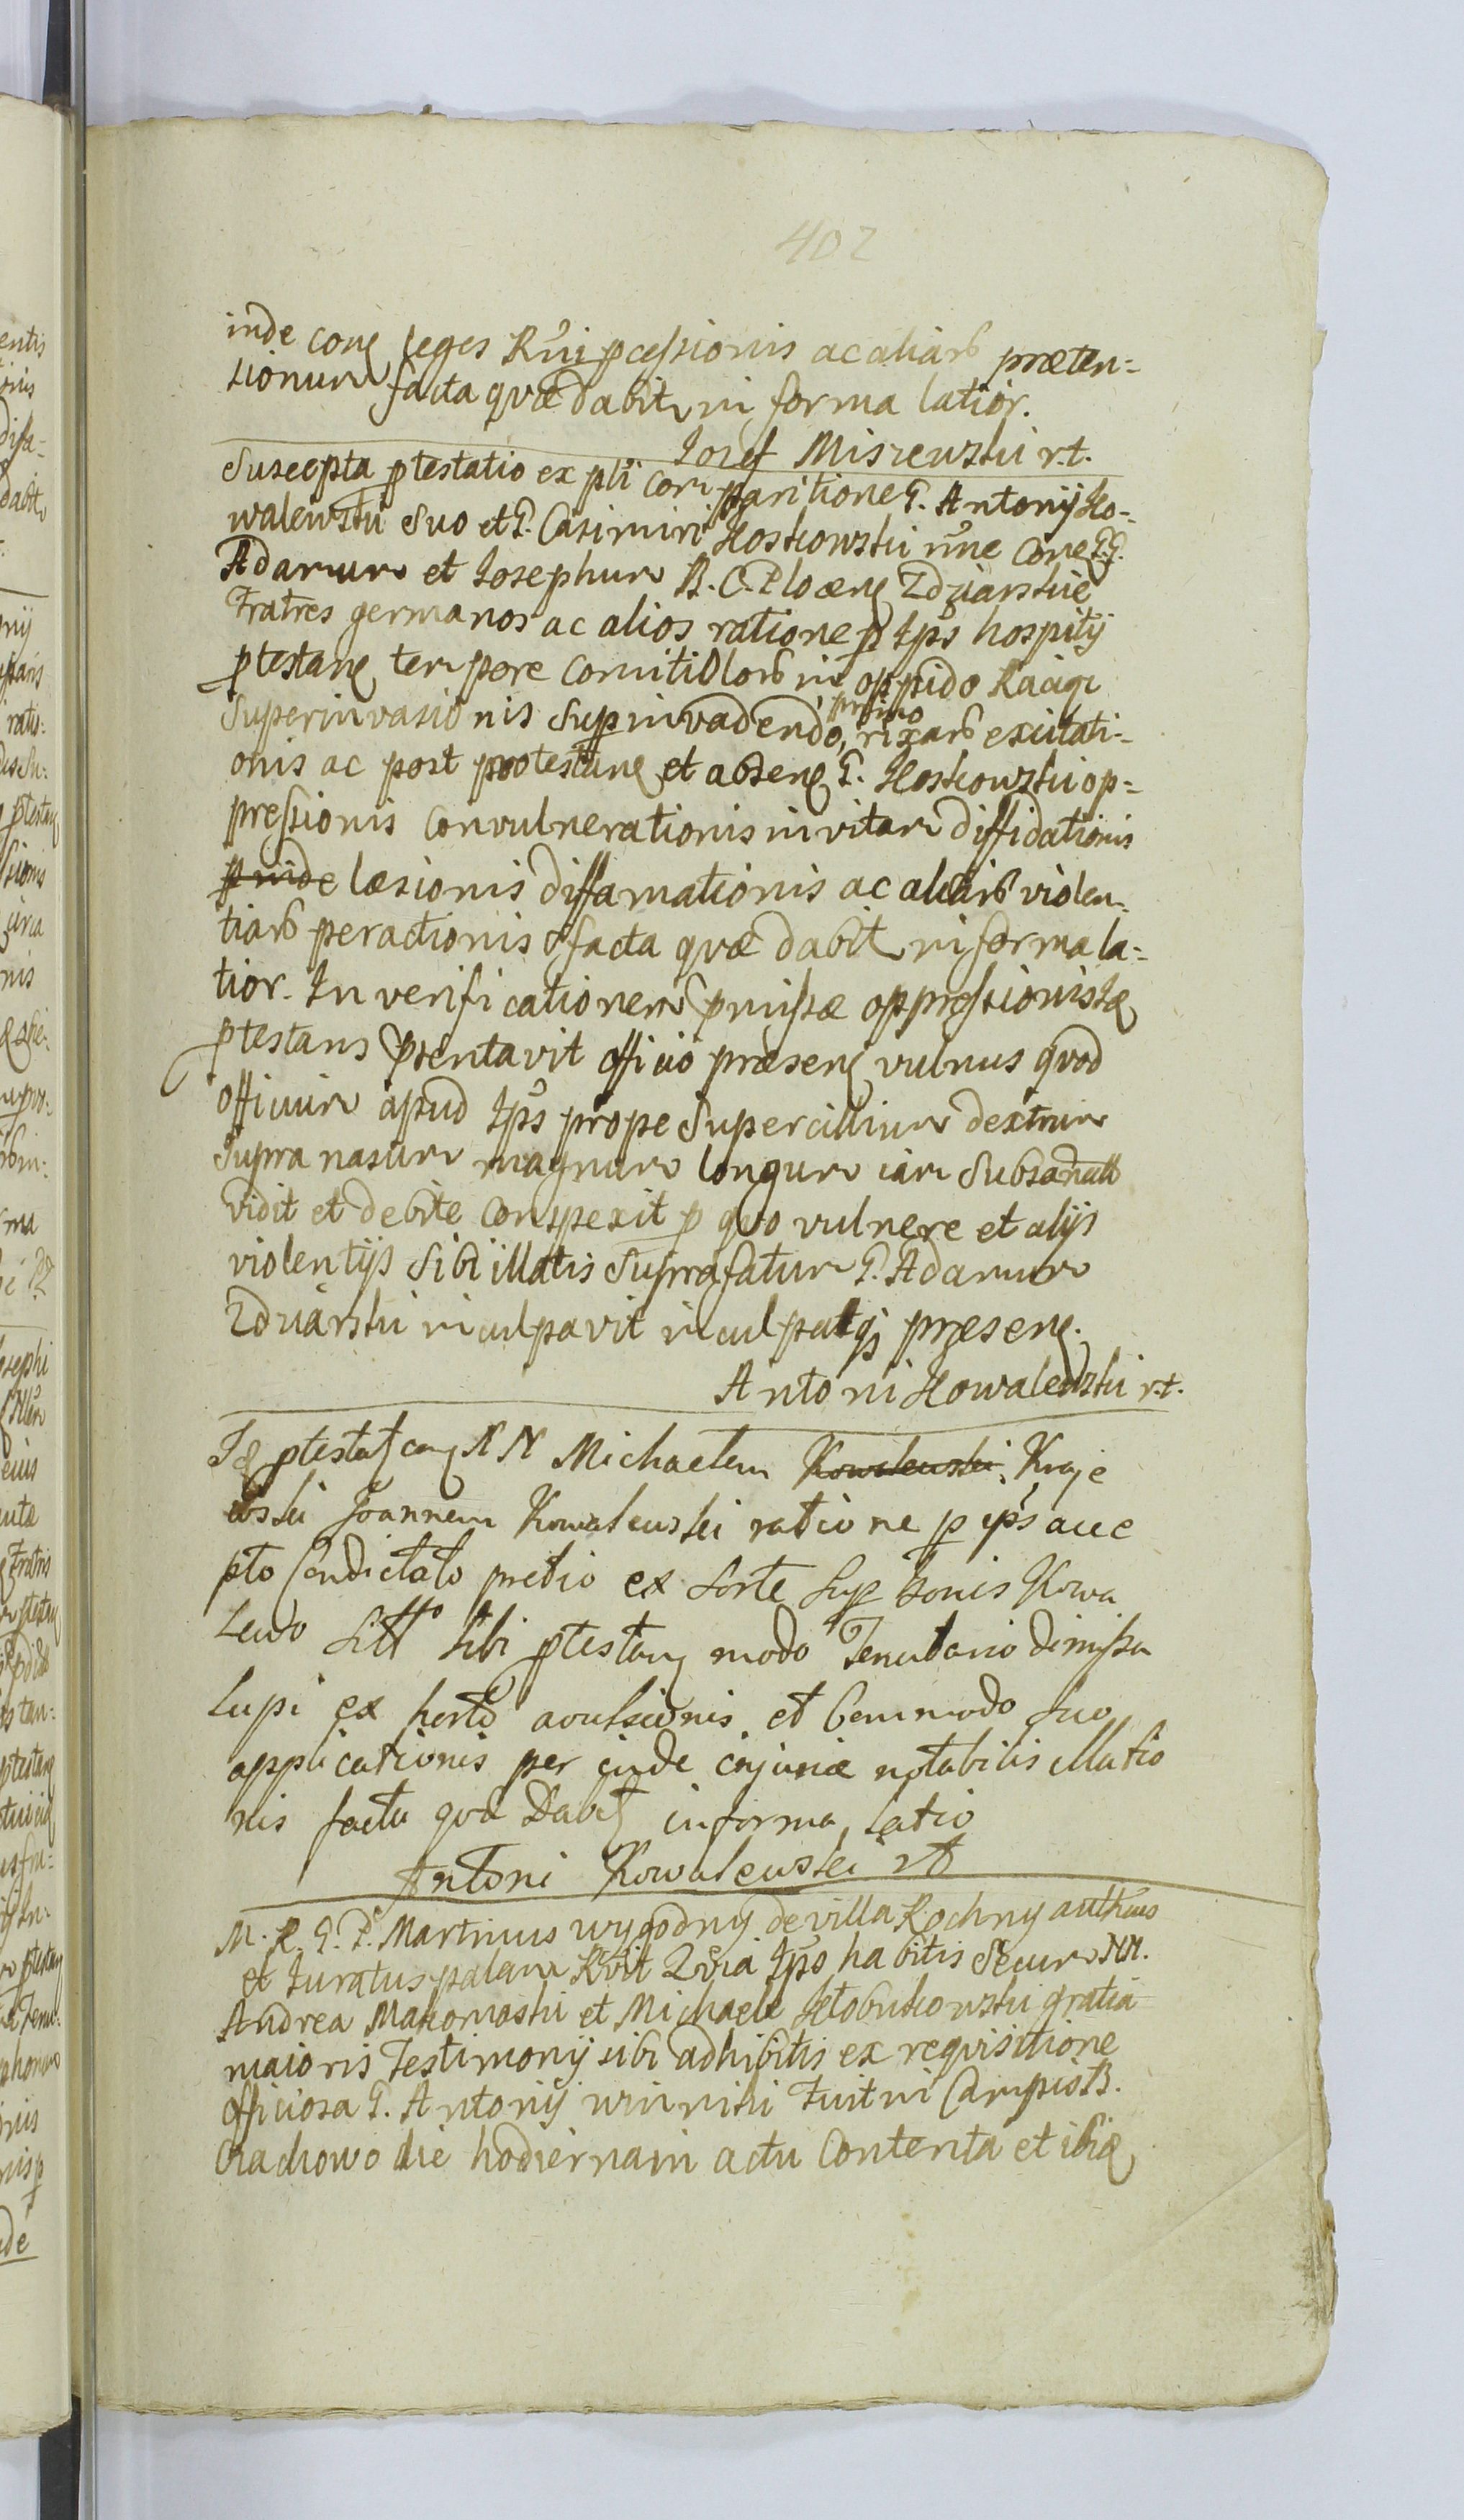 402
inde cone leges Rni pcessionis ac aliarb præten-
sionum facta qvæ dabit in forma latior.
Iozef Miszewski r.t.
Suscepta ptestatio ex pli comparitione G. Antonij Ko-
walewski Suo et G. Casimiri Koskowski nne cone G.G.
Adamum et Iosephum B. C. Plocens Zdziarskie
Fratres germanos ac alios ratione p Ips hospitij
ptestans tempore comitiolorb in oppido Raciąż
Superinvasionis Superinvadendo, primo rixarb excitati-
onis ac post protestans et absens G. Koskowski op-
pressionis Convulnerationis in vitam diffidationis
p inde læsionis diffamationis ac aliarb violen-
tiarb peractionis facta qvæ dabit in forma la-
tior. In verificationem pmissæ oppressionis Idq
ptestans psentavit officio præsens vulnus qvod
officium apud Ips prope Supercilium dextrum
Supra nasum magnum longum iam Subsanatt
vidit et debite Conspexit p qvo vulnere et alijs
violentijs Sibi illatis Suprafatum G. Adamum
Zdziarski inculpavit inculpatqj præsens.
Antoni Kowalewski r.t.
Id ptestat con NN Michaelem Kowalewski Kraje
wski Joannem Kowalewski ratione p ips acce
pto Condictato pretio ex sorte Sup bonis Kowa
lewo Sitt Sibi ptestans modo Tenutario dimissa
Lupi ex horto avulsionis et Commodo suo
applicationis per inde injuriæ notabilis illatio
nis facta qvæ Dabit in forma latio
Antoni Kowalewski rt
M. R. G. P. Martinus wygodny de villa Rochny authcus
et Iuratus palam Rvit Qvia Ipso habitis Secum NN.
Andrea Makomaski et Michaele Kłobukowski gratia
maioris Testimonij sibi adhibitis ex reqvisitione
officiosa G. Antonij winnicki Fuit in Campis B.
Crachowo die hodierna in actu Contenta et ibiq